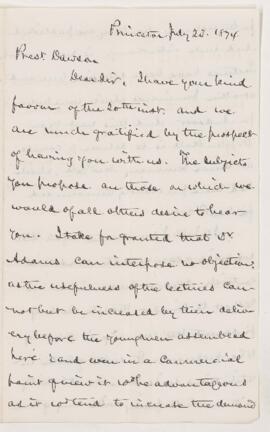 Princeton July 23. 1874
Prest Dawson
Dear Sir, I have your kind
favour of the 20th inst. and we
are much gratified by the prospect
of having you with us. The subjects
you propose are those on which we
would of all others desire to hear
you. I take for granted that Dr
Adams can interpose no objection:
as the usefulness of the lectures can-
not but be increased by their deliv-
ery before the young men assembled
here: and even in a commercial
point of view it wd be advantageous
as it wd tend to increase the demand